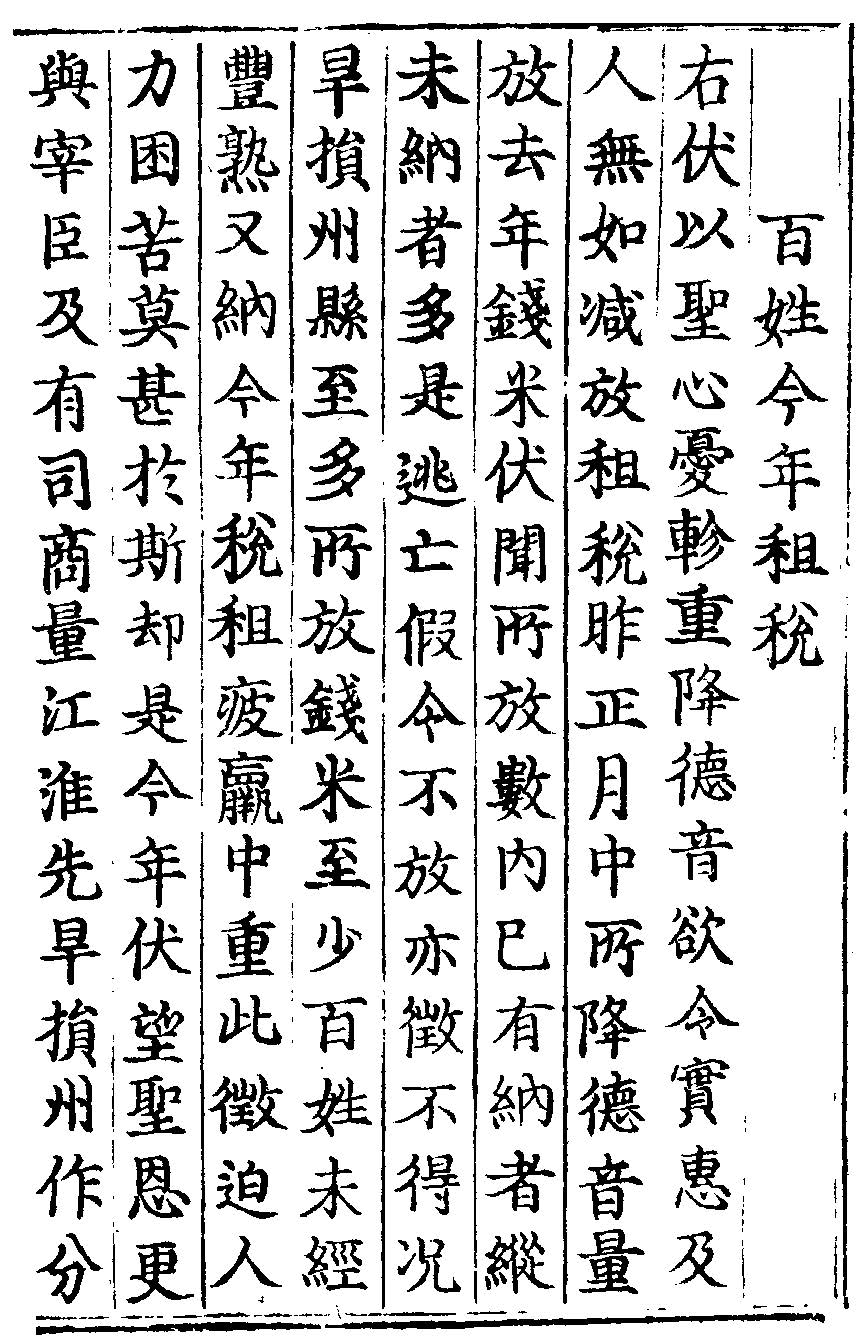 百姓今年租稅
右伏以聖心憂軫重降德音欲令實惠及
人無如減放租稅昨正月中所降德音量
放去年錢米伏聞所放數內巳有納者縱
未納者多是逃亡假令不放亦徵不得况
旱損州縣至多所放錢米至少百姓未經
豐熟又納今年稅租疲羸中重此徵迫人
力困苦莫甚於斯却是今年伏望聖恩更
與宰臣及有司商量江淮先旱損州作分